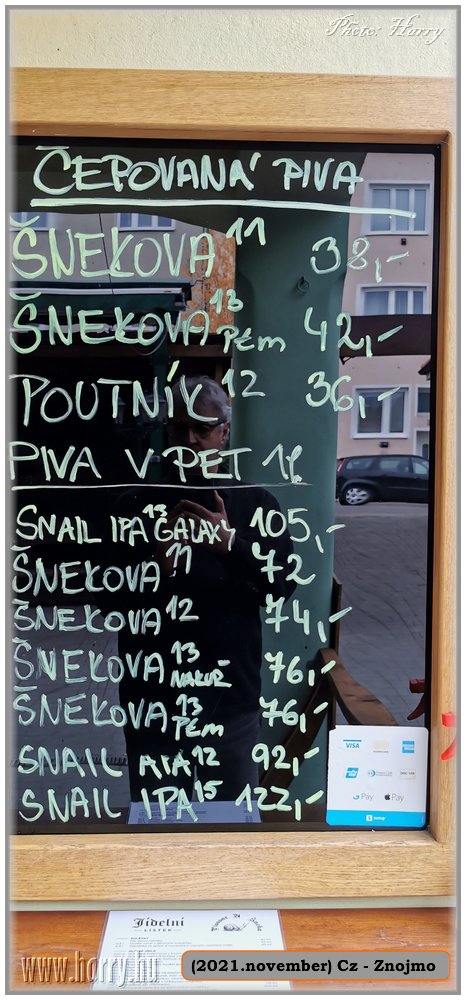 Photo: Harry
ČEPOVANÁ PIVA
ŠNEKOVA 11 38,-
ŠNEKOVA 13 PEM 42,-
POUTNÍK 12 36,-
PIVA V PET 1l
SNAIL IPA 13 GALAXY 105,-
ŠNEKOVA 11 72
ŠNEKOVA 12 74,-
ŠNEKOVA 13 NAKUŘ 76,-
ŠNEKOVA 13 PEM 76,-
SNAIL AIA 12 92,-
SNAIL IPA 15 122,-
VISA
G Pay Pay
sumup
Jídelní
LÍSTEK
www.horry.hu
(2021.november) Cz - Znojmo